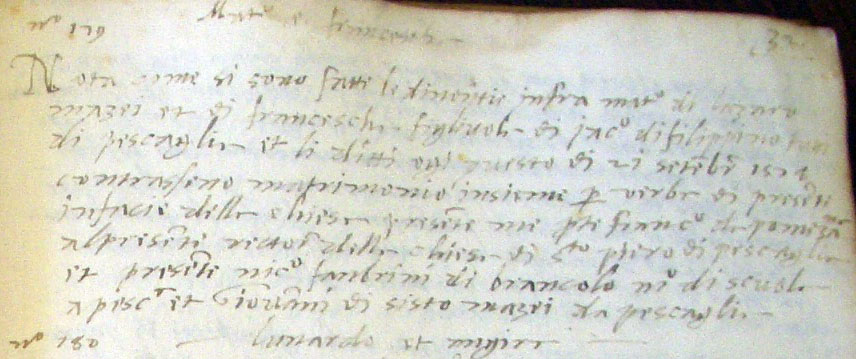 nº 179 Matº e francescha 33
Nota come si sono fatte le dinontie infra matº di lazaro
mazei et di francescha figliuola di jacº di filippino
di pescaglia et li ditti ogi questo di 21 setebe
contrasseno matrimonio insieme p verba di presente
infacie della chiesa presente me pte francº da
alpresente rectore della chiesa di Sto piero di pescaglia
et presente nicº di brancolo mº di scuola
a pesca et Giovanni di sisto mazei da pescaglia
nº 180 lunardo et